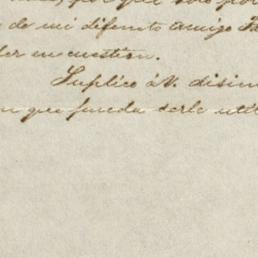 por que solo por
de mi difunto amigo
der en cuestion.
Suplico á V. disim
en que pueda serle util